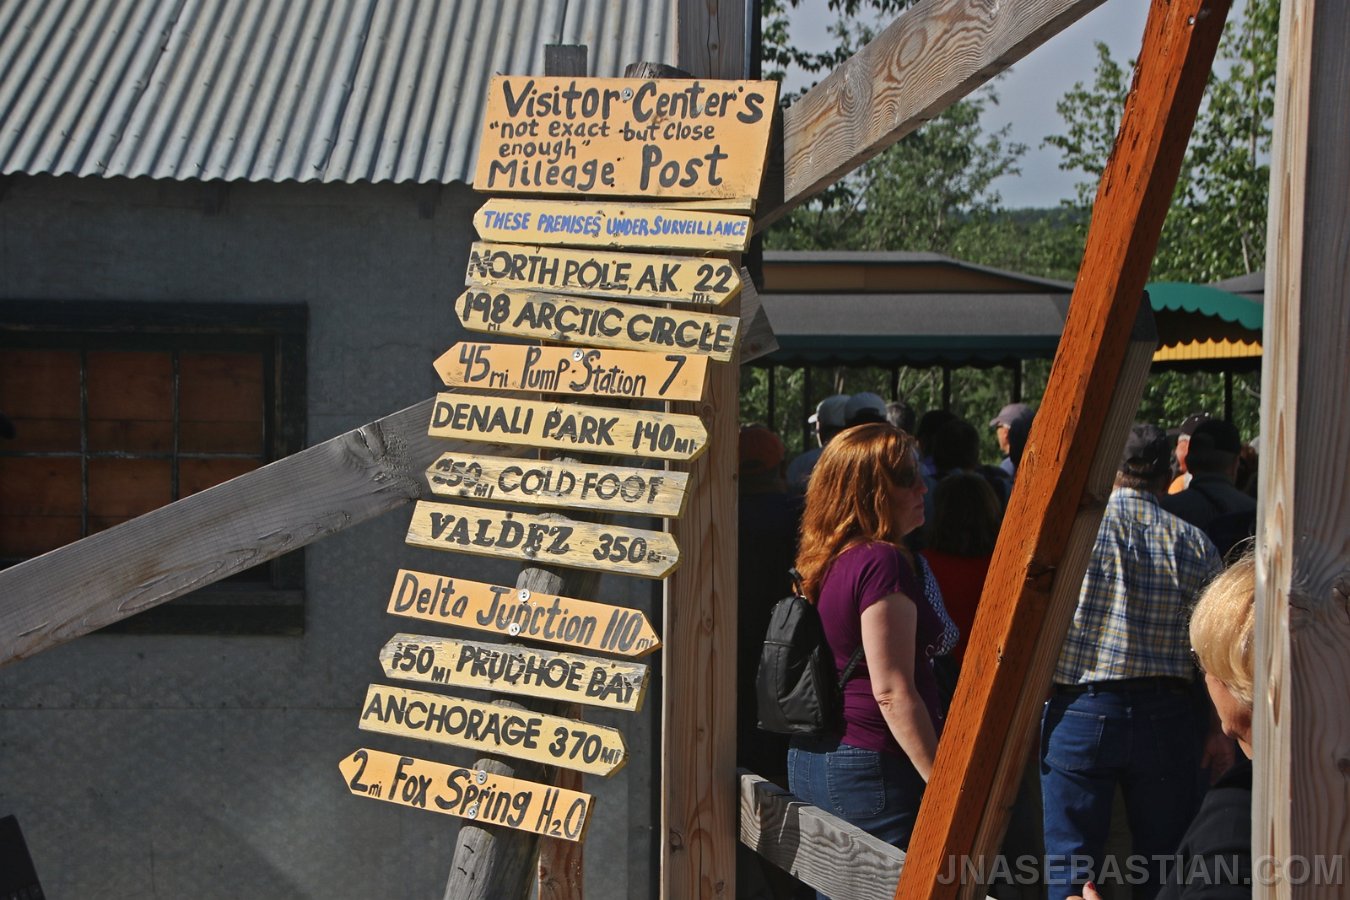 Visitor Center's
"not exact but close
enough"
Mileage Post
THESE PREMISES UNDER SURVEILLANCE
NORTH POLE, AK 22 mi
198 MI ARCTIC CIRCLE
45 mi Pump Station 7
DENALI PARK 140 MI
250 MI COLD FOOT
VALDEZ 350 MI
Delta Junction 110 mi
150 MI PRUDHOE BAY
ANCHORAGE 370 MI
2 mi Fox Spring H2O
JNASEBASTIAN.COM